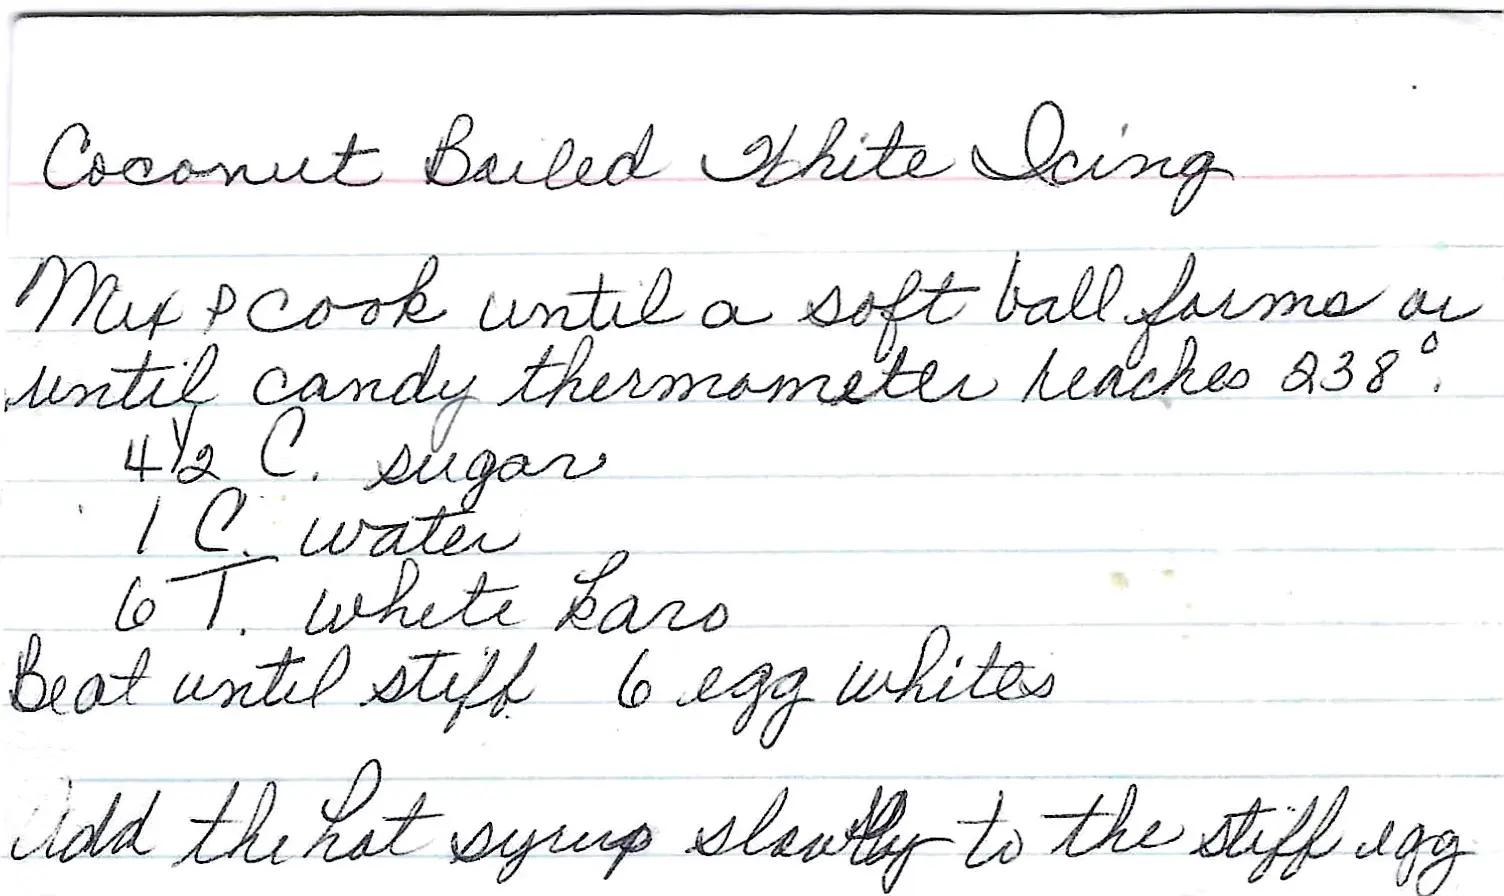 Coconut Boiled White Icing
Mix & cook until a soft ball forms or
until candy thermometer reaches 238°.
4 1/2 C. sugar
1 C. water
6 T. white karo
Beat until stiff 6 egg whites
Add the hot syrup slowly to the stiff egg